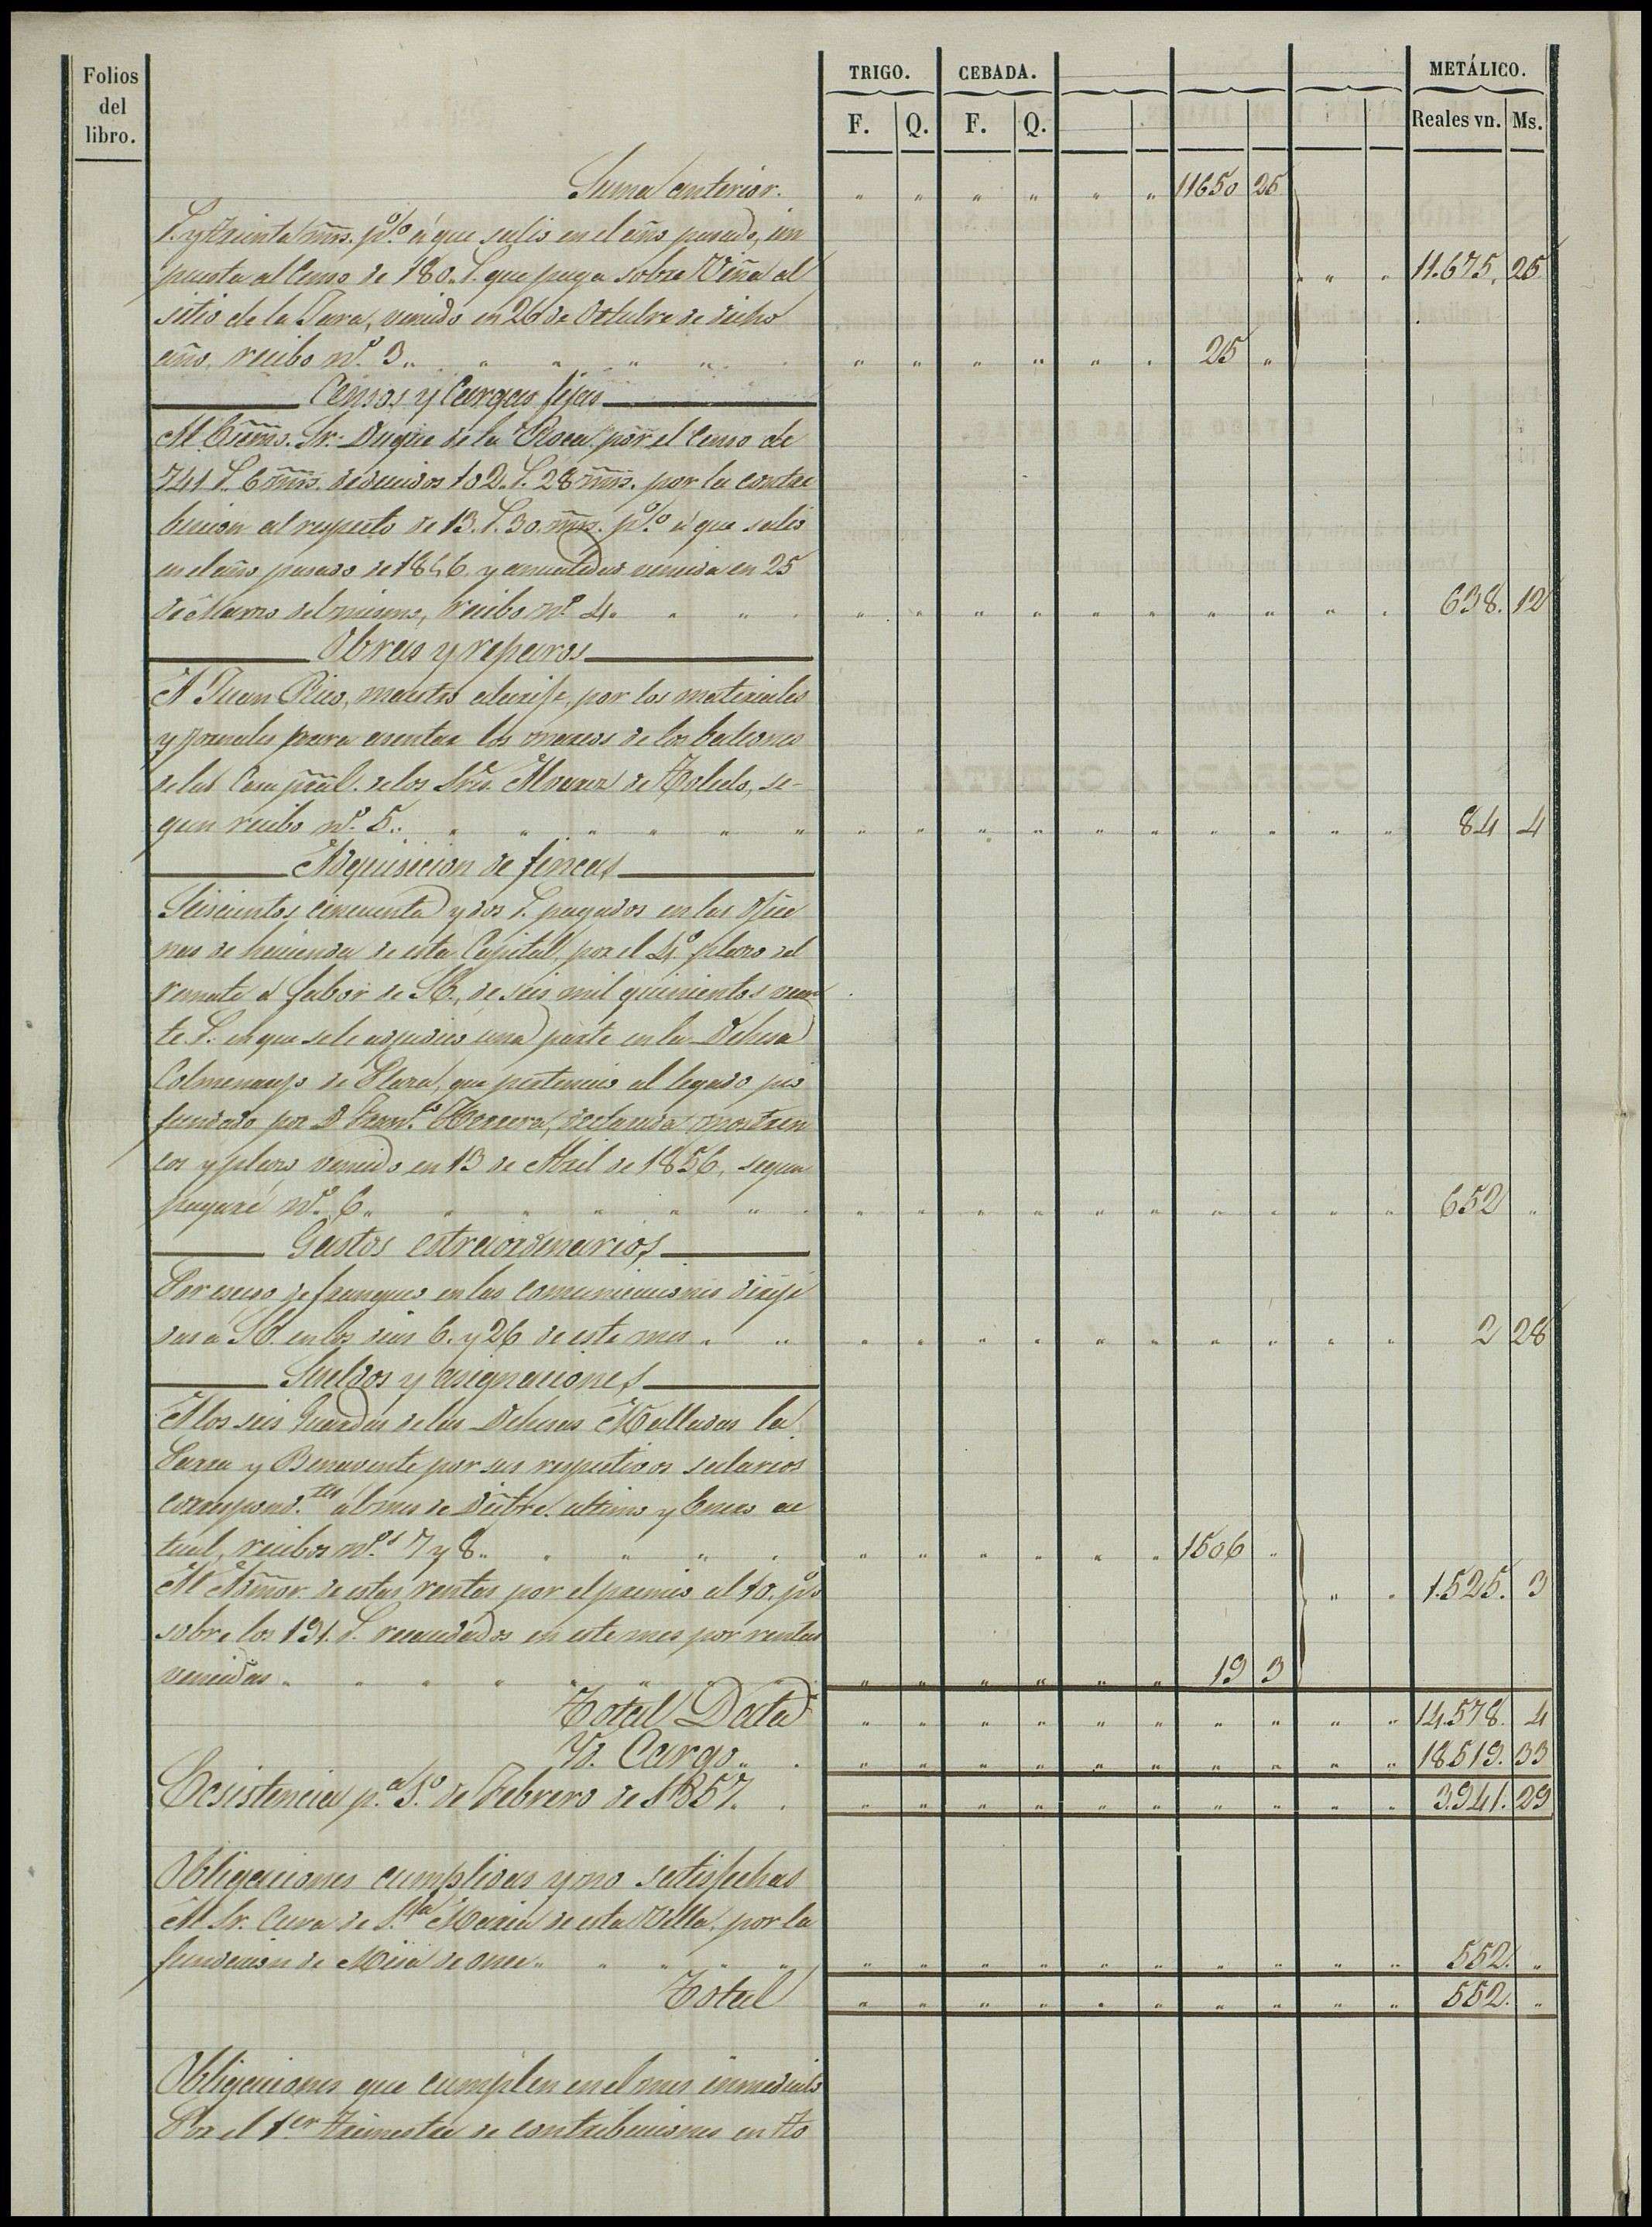 Folios del libro. TRIGO. CEBADA. METÁLICO.
F. Q. F. Q. Reales vn. Ms.
Suma anterior. " " " " " " 11650 25
y treinta mrs. p% á que salió en el año pasado, im
puesta al Censo de 180. que paga sobre Viña al 11.675, 25
sitio de la Jara, vencido en 26 de Octubre de dicho
año, recibo nº 3 " " " " " " 25 "
Censos y Cargas fijas
Al Escmo. Sr. Duque de la Roca por el Censo de
741 6 mrs. deducidos 102. 28 mrs. por la contri
bucion al respecto de 13. 30. mrs. p% á que salió
en el año pasado de 1856 y anualidad vencida en 25
de Marzo del mismo, recibo nº 4. " " " " " " " " " " 638. 12
Obras y reparos
A Juan Rico, maestro alarife, por los materiales
y jornales para asentar los marcos de los balcones
de la Casa pral. de los Sres. Alvarez de Toledo, se-
gun recibo nº 5. " " " " " " " " " " 84 4
Adquisicion de fincas
Seiscientos cincuenta y dos pagados en las ofici
nas de hacienda de esta Capital, por el 4º plazo del
remate á fabor de SE., de seis mil quinientos vein
te en que se le adjudicó una parte en la Dehesa
Colmenarejo de Plaza, que perteneció al legado pio
fundado por D Fran.co Herrera, declarada mostren
cos y plazo vencido en 13 de Abril de 1856, segun
pagaré nº 6 " " " " " " " " " " 652 "
Gastos estraordinarios
Por esceso de franqueo en las comunicaciones diriji
das a SE. en los dias 6. y 26 de este mes " " " " " " " " " " 2 28
Sueldos y asignaciones
A los seis Guardas de las Dehesas Malladas la
Parra y Benavente por sus respectivos salarios
correspond.tes al mes de Dicbre. ultimo y Enero ac
tual, recibos nº.s 7 y 8 " " " " " " 1506 "
Al Admor. de estas rentas por el premio al 10. p% " " 1.525. 3
sobre los 191. recaudados en este mes por rentas
vencidas " " " " " " 19 3
Total Data " " " " " " " " " " 14.578. 4
Yd. Cargo " " " " " " " " " " 18.519. 33
Ecsistencia p.a 1º de Febrero de 1857. " " " " " " " " " " 3.941. 29
Obligaciones cumplidas y no satisfechas
Al Sr. Cura de S.ta Maria de esta Villa, por la
fundacion de Misa de once " " " " " " " " " " 552. "
Total " " " " " " " " " " 552. "
Obligaciones que cumplen en el mes inmediato
Por el 1.er trimestre de contribuciones en to